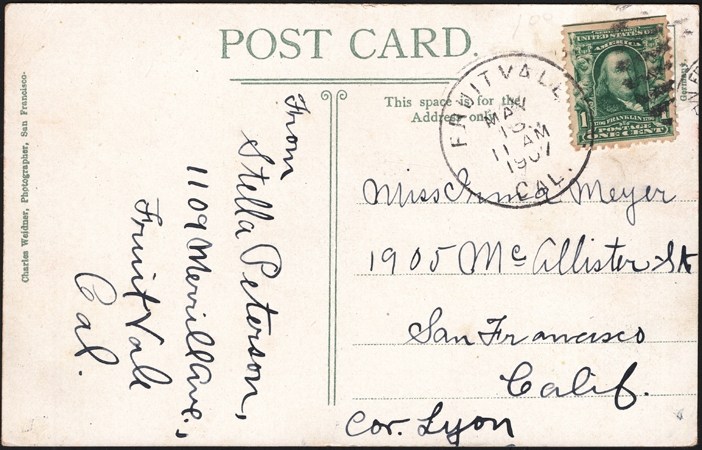 POST CARD.
This space is for the
Address only.
FRUITVALE
MAY
11 AM
1907
CAL.
UNITED STATES OF
AMERICA
FRANKLIN
POSTAGE
ONE CENT
Miss Anna Meyer
1905 McAllister St
San Francisco
Calif.
Cor. Lyon
From
Stella Peterson,
1109 Merrill Ave.,
Fruit Vale
Cal.
Charles Weidner, Photographer, San Francisco-
Germany.